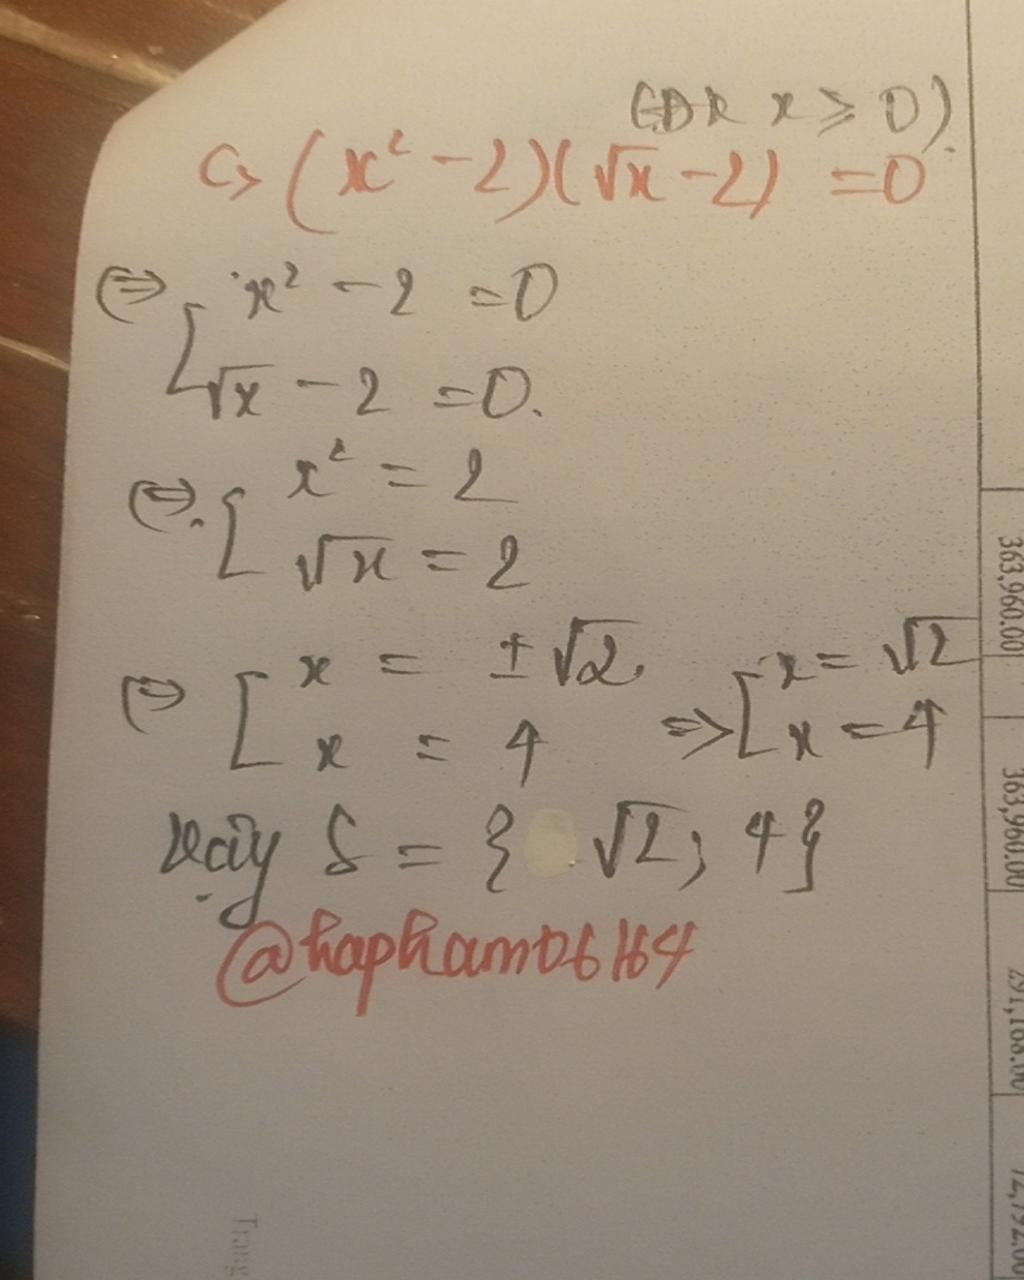 (ĐK x ≥ 0).
c, (x² - 2)(√x - 2) = 0
⇔ [ x² - 2 = 0
√x - 2 = 0.
⇔ [ x² = 2
√x = 2
⇔ [ x = ±√2. ⇒ [ x = √2
x = 4 x = 4
Vậy S = { √2; 4}
@hapham06164
363,960.00
363,960.00
291,168.00
72,792.00
Trang